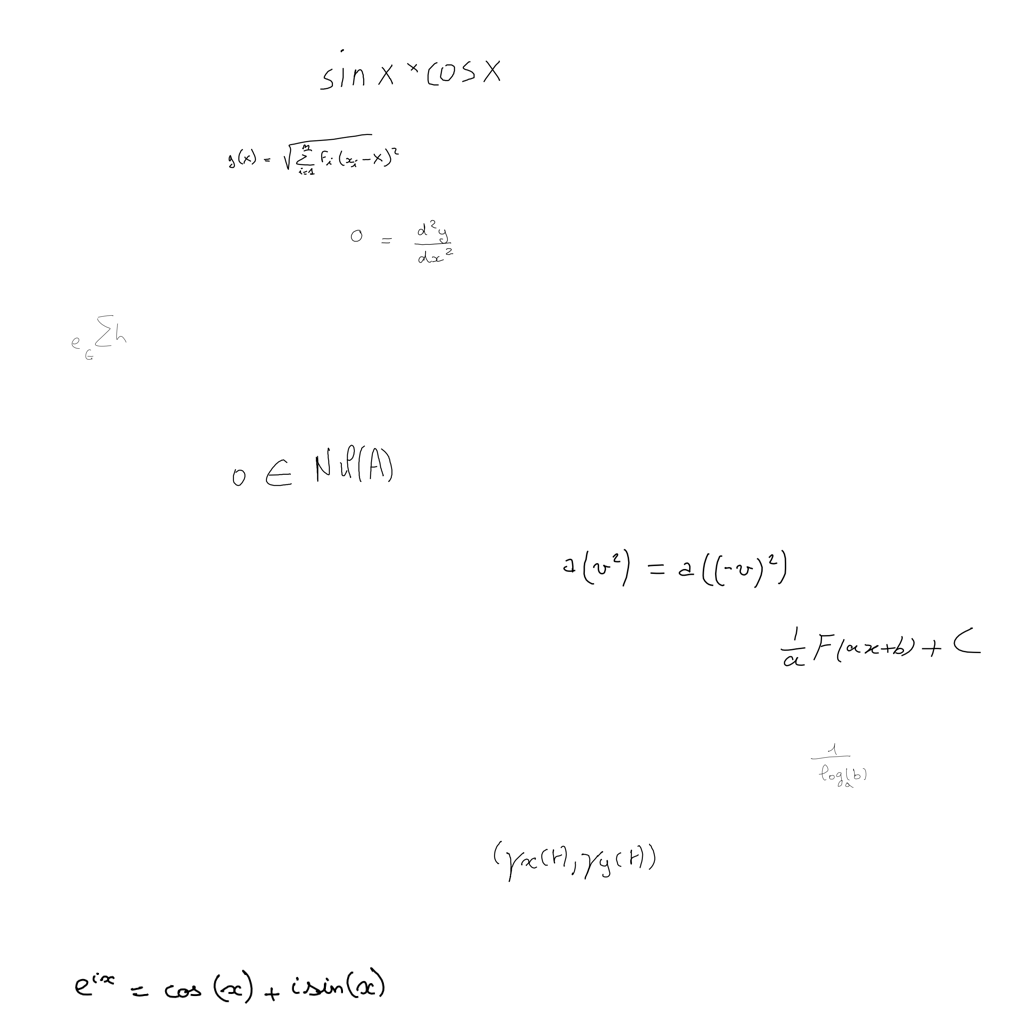 sin x × cos x
g(x) = √(∑_{i=1}^{n} F_i (x_i - x)^2)
0 = d²y/dx²
e_G ∑ h
0 ∈ Nul(A)
a(v²) = a((-v)²)
1/a F(ax+b) + C
1/log_a(b)
(γx(t), γy(t))
e^{ix} = cos(x) + i sin(x)